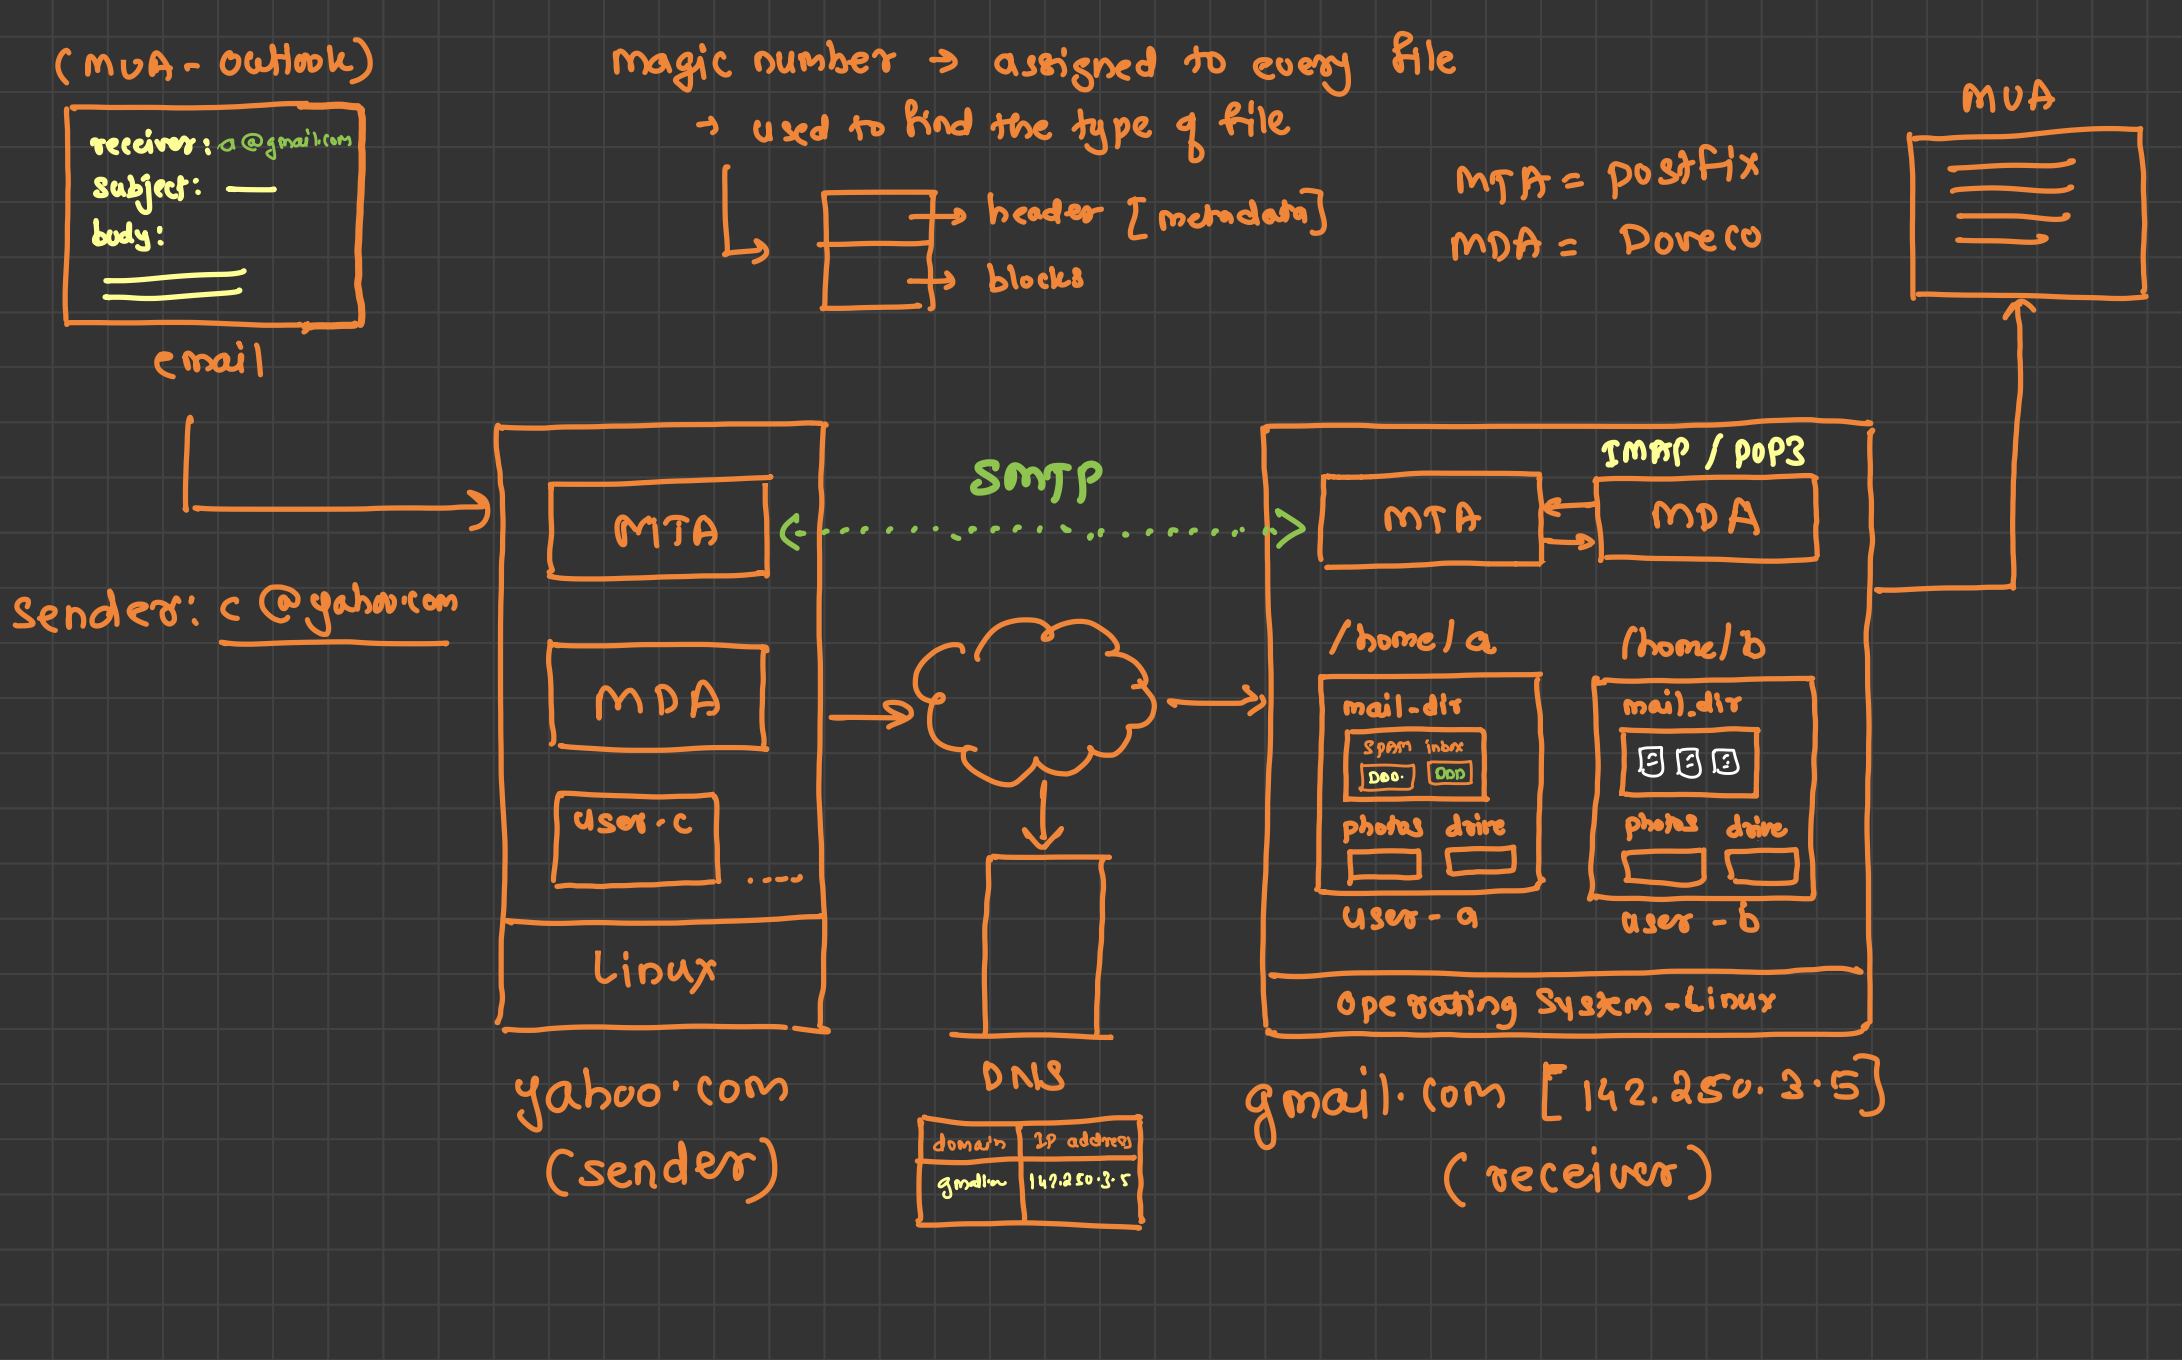 (MUA - Outlook)
receiver: a@gmail.com
subject:
body:
email
magic number → assigned to every file
→ used to find the type of file
header [metadata]
blocks
MTA = Postfix
MDA = Doveco
MUA
sender: c @yahoo.com
MTA
MDA
user-c
.....
Linux
yahoo.com
(sender)
SMTP
DNS
domain IP address
142.250.3.5
IMAP / POP3
MTA
MDA
/home/a
mail-dir
SPAM inbox
photos drive
user-a
/home/b
mail.dir
photos drive
user-b
Operating System-Linux
gmail.com [142.250.3.5]
(receiver)